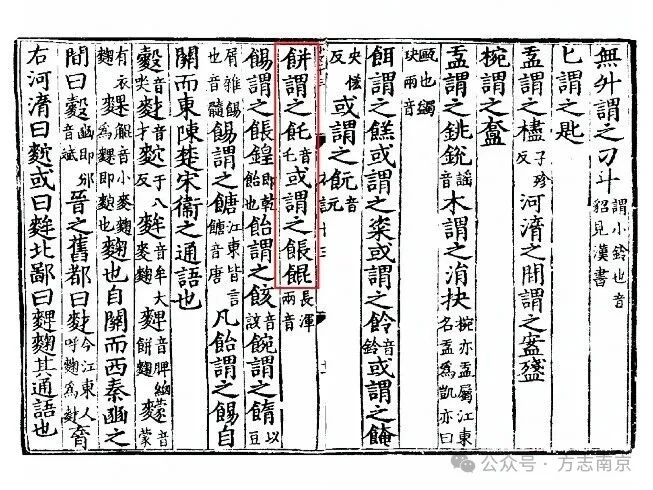 無升謂之刁斗謂小鈴也音貂見漢書
匕謂之匙
盂謂之㰏子殄反河濟之間謂之
椀謂之
盂謂之銚銳音謡木謂之涓抉椀亦盂屬江東名盂為凱亦曰
甌也蠲玦兩音
餌謂之餻或謂之粢或謂之䬧音鈴或謂之餣
央怯反或謂之䬧音元
餅謂之飥音乇或謂之餦餛長渾兩音
餳謂之餦餭即乾飴也飴謂之䬵音該䬼謂之以豆
屑雜餳也音髓餳謂之餹江東皆言餹音唐凡飴謂之餳自
關而東陳楚宋衞之通語也
音哭音才于八反麰音牟大麥麴音脾細餅麴音蒙
有衣麴音小麥麴為即也麴也自關而西秦豳之
間曰豳即邠音斌晉之舊都曰今江東人呼麴為齊
右河濟曰或曰麰北鄙曰麴其通語也
公众号·方志南京